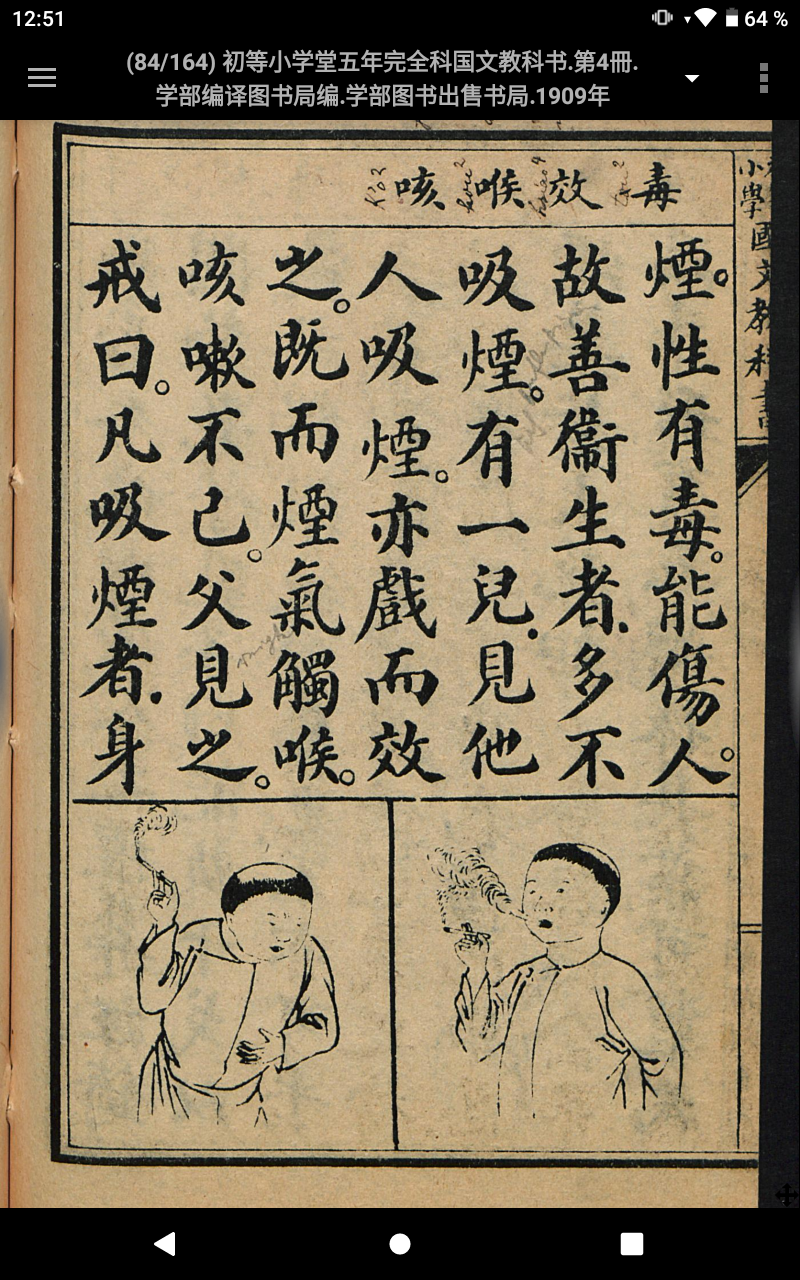 12:51
64 %
(84/164) 初等小学堂五年完全科国文教科书.第4冊.
学部编译图书局编.学部图书出售书局.1909年
毒 效 喉 咳
煙。性有毒。能傷人。
故善衞生者.多不
吸煙。有一兒.見他
人吸煙。亦戲而效
之。既而煙氣觸喉。
咳嗽不已。父見之。
戒曰。凡吸煙者.身
小學國文教科書